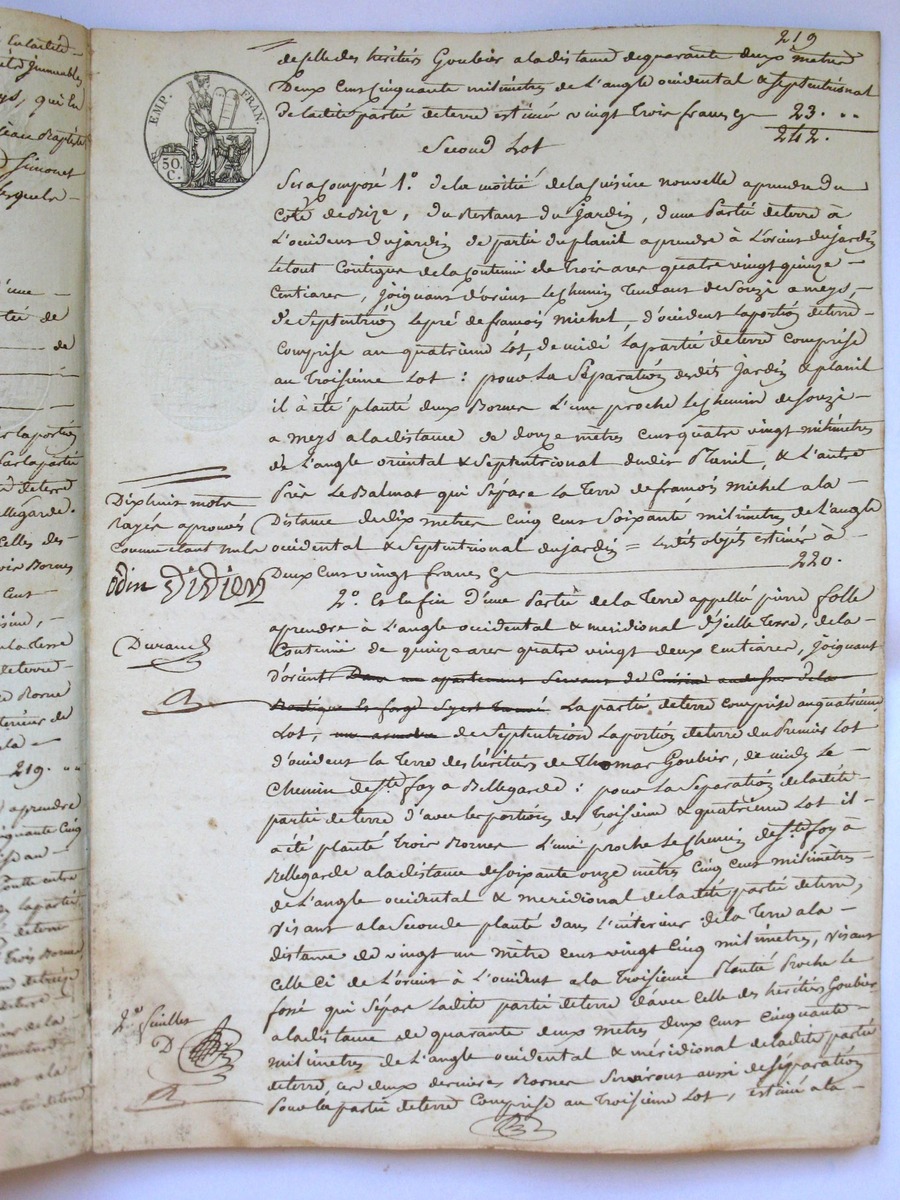 219
de celle des héritiers Goubier a la distance de quarante deux metres
Deux Cens Cinquante milimétres de L'angle ocidental & Septentrional
de la dite partié de terre estimée vingt Trois francs 23. ..
242.
Second Lot
EMP. FRAN.
50. C.
Sera Composé 1.º de la moitié de la Cuisine nouvelle a prendre du
Coté de Bize, du Restant du Jardin, d'une Partié de terre à
L'ocident du jardin de partié du planil a prendre à L'orient du jardin
Le tout Contigue de la Contenuë de Trois ares quatre vingt quinze
Centiares, joignant d'orient le Chemin Tendant de Souzi a meys,
de Septentrion Le pré de francois Michel, d'ocident La portion de terre
Comprise au quatrieme Lot, de midi La partié de terre Comprise
au Troisième Lot : pour La Séparation desdits Jardin & planil
il à été planté deux Bornes L'une proche le Chemin de Souzi
a Meys a la distance de douze metres Cent quatre vingt milimétres
de L'angle oriental & Septentrional dudit Planil, & L'autre
Près Le Balmat qui Sépare La Terre de francois Michel a la
Distance de dix metres Cinq Cent Soixante milimetres de L'angle
occidental & Septentrional du jardin = Lesdits objets estimés à
Deux Cens vingt francs 220.
Dix huit mots
rayés aprouvés
Comme etant nuls
odin Didier
Durand
2.º Et la fin d'une Partié de la Terre appellé pierre folle
a prendre à L'angle occidental & meridional d'jcelle Terre, de la
Contenuë de quinze ares quatre vingt deux Centiares, joignant
d'orient Dans un apartement Servant de Cuisine au dessus de la
Boutique La partié de terre Comprise au quatrième
Lot, de Septentrion La portion de terre du Premier Lot
d'ocident La Terre des héritiers de Thomas Goubier, de midi Le
Chemin de S.te foy a Bellegarde : pour La Separation de la dite
partié de terre d'avec les portions des Troisième & quatrième Lot il
a été planté Trois Bornes L'une proche Le Chemin de S.te foy à
Bellegarde a la distance de Soixante onze mètres Cinq Cens milimètres
de L'angle occidental & meridional de la dite partié de terre,
Visant a la Seconde planté dans L'intérieur de la Terre a la
distance de vingt un mètre Cent vingt Cinq milimètres, Visant
Celle Ci de L'orient à L'ocident a la Troisième Planté Proche Le
fossé qui Sépare La dite partié de terre d'avec Celle des héritiers Goubier
a la distance de quarante deux metres deux Cens Cinquante
milimetres de L'angle occidental & méridional de la dite partié
de terre, Ces deux dernieres Bornes Serviront aussi de Séparation
pour la partié de terre Comprise au Troisième Lot, estimé a la
2.me feuillet
D